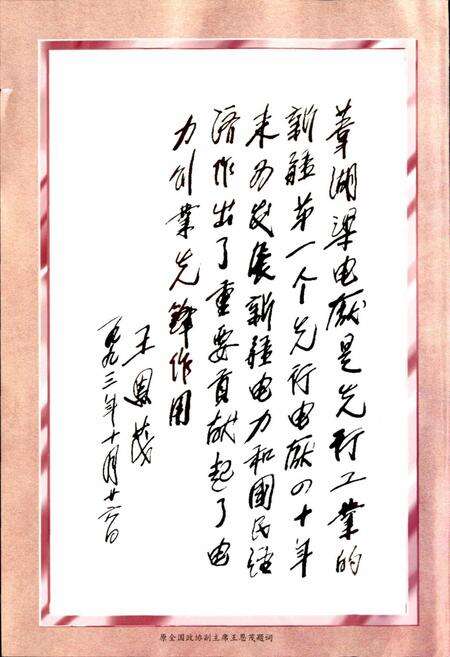 葦湖梁电厰是先行工业的
新疆第一个先行电厰四十年
来为发展新疆电力和國民经
济作出了重要貢献起了电
力创業先鋒作用
王恩茂
一九九三年十月廿六日
原全国政协副主席王恩茂题词